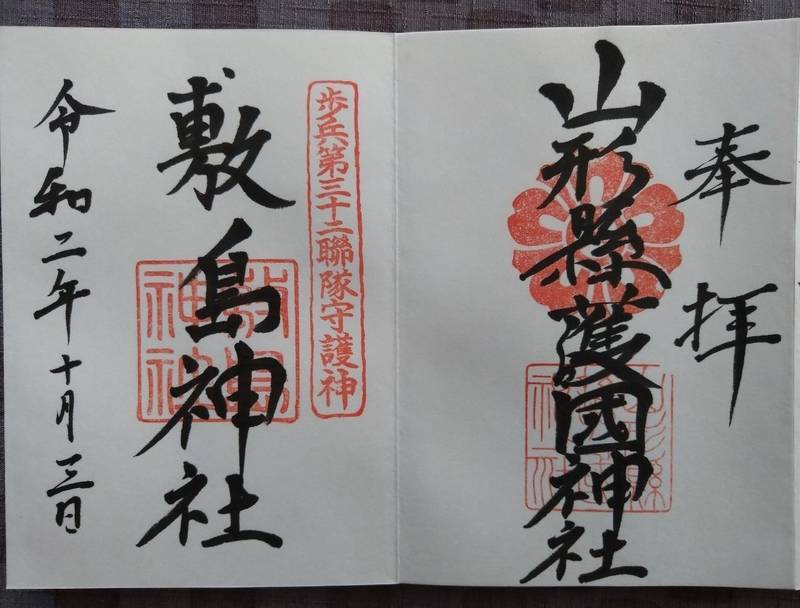 奉拝
山形縣護國神社
歩兵第三十二聯隊守護神
敷島神社
敷島神社
令和二年十月三日